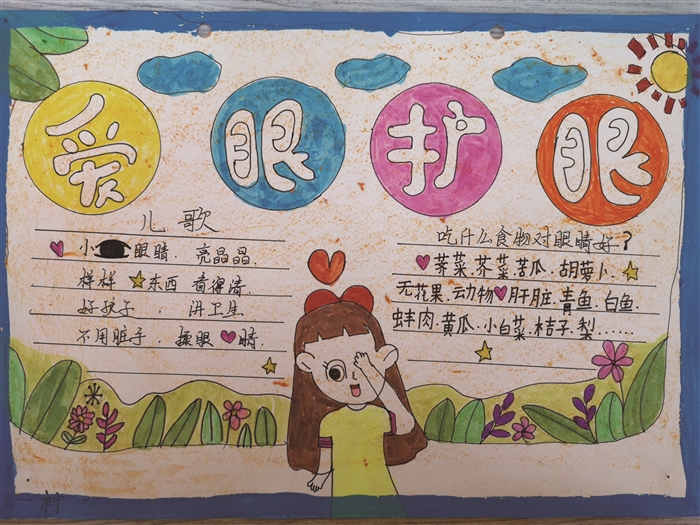 爱眼护眼
儿歌
小眼睛 亮晶晶
样样东西 看得清
好孩子, 讲卫生
不用脏手, 揉眼睛.
吃什么食物对眼睛好?
荠菜.芥菜.苦瓜.胡萝卜.
无花果.动物肝脏.青鱼.白鱼.
蚌肉.黄瓜.小白菜.桔子.梨......